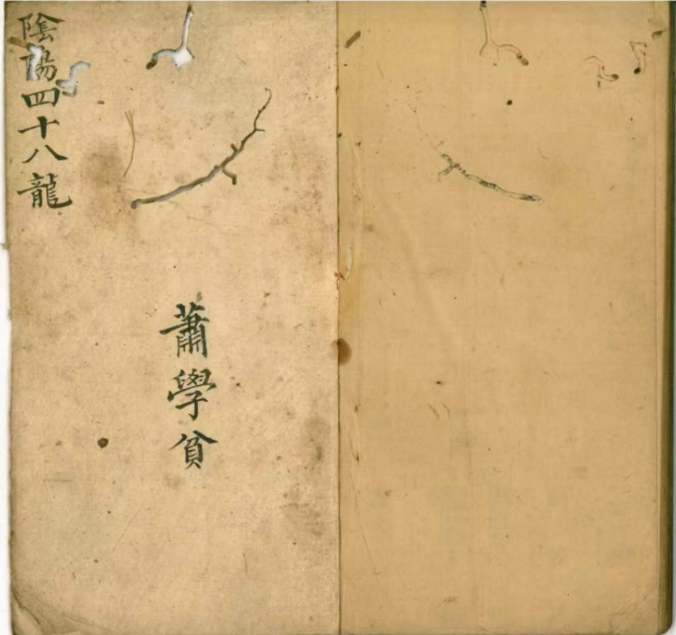 陰陽四十八龍
蕭學貧